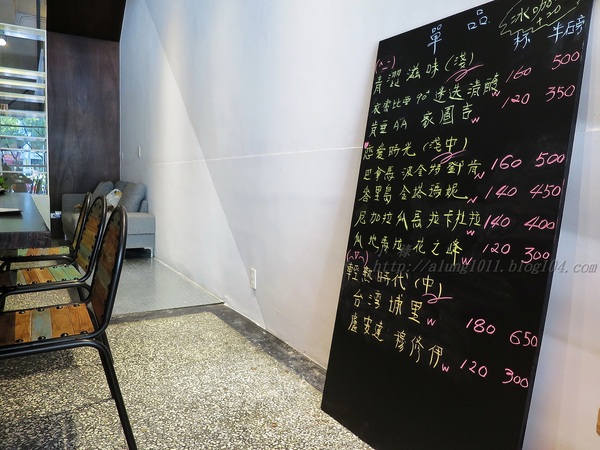 單品
冰咖
+20
杯 半磅
(一)
青澀滋味(淺)
衣索比亞90+ 迷選 漬釀 w 160 500
肯亞AA 家園吉 w 120 350
戀愛時光(淺中)
巴拿馬 波奎特 w 160 500
峇里島 金塔瑪妮 w 140 450
尼加拉瓜 長拉卡杜拉 w 140 400
瓜地希拉 花之峰 w 120 300
輕熟時代(中)
台灣 埔里 w 180 650
盧安達 穆修伊 w 120 300
http://alung1011.blog104.com